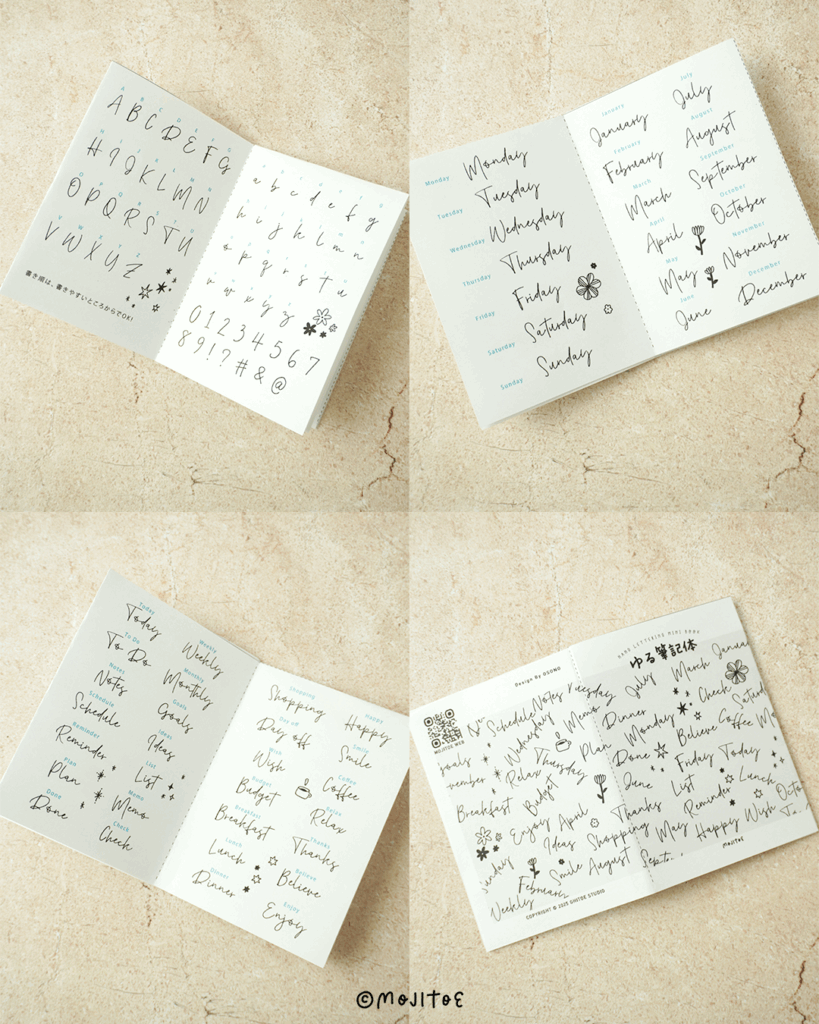 A B C D E F G
A B C D E F G
H I J K L M N
H I J K L M N
O P Q R S T U
O P Q R S T U
V W X Y Z
V W X Y Z
書き順は、書きやすいところからでOK!
a b c d e f g
h i j k l m n
o p q r s t u
v w x y z
0 1 2 3 4 5 6 7
8 9 ! ? # & @
Monday Monday
Tuesday Tuesday
Wednesday Wednesday
Thursday Thursday
Friday Friday
Saturday Saturday
Sunday Sunday
January
January
February
February
March
March
April
April
May
May
June
June
July
July
August
August
September
September
October
October
November
November
December
December
Today
Today
To Do
To Do
Notes
Notes
Schedule
Schedule
Reminder
Reminder
Plan
Plan
Done
Done
Weekly
Weekly
Monthly
Monthly
Goals
Goals
Ideas
Ideas
List
List
Memo
Memo
Check
Check
Shopping
Shopping
Day off
Day off
Wish
Wish
Budget
Budget
Breakfast
Breakfast
Lunch
Lunch
Dinner
Dinner
Happy
Happy
Smile
Smile
Coffee
Coffee
Relax
Relax
Thanks
Thanks
Believe
Believe
Enjoy
Enjoy
Design By OSOMO
MOJITOE WEB
Schedule Notes Tuesday
Wednesday Memo
Goals
Relax Thursday Plan
Breakfast Budget
Enjoy April
Ideas Shopping
Smile August
February
Weekly
COPYRIGHT © 2025 OHITOE STUDIO
HAND LETTERING MINI BOOK
ゆる筆記体
July March
Dinner Check
Monday Believe Coffee
Done Friday Today
June List Lunch
Thanks Reminder
May Happy Wish
MOJITOE
©MOJITOE